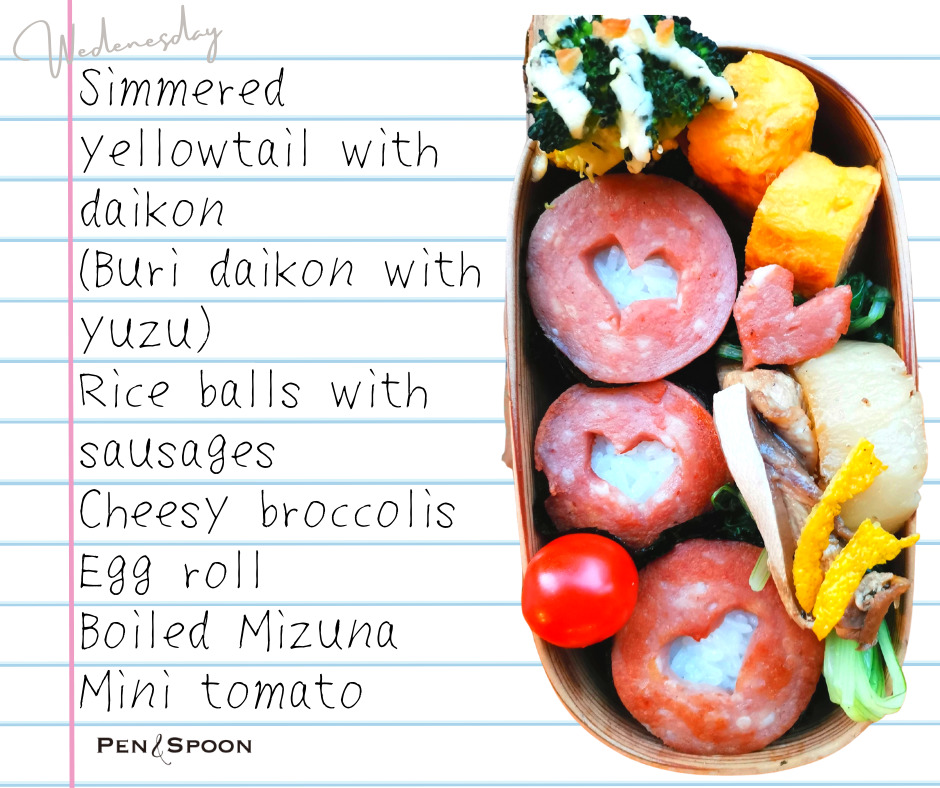 Wedenesday
Simmered
yellowtail with
daikon
(Buri daikon with
yuzu)
Rice balls with
sausages
Cheesy broccolis
Egg roll
Boiled Mizuna
Mini tomato
PEN&SPOON